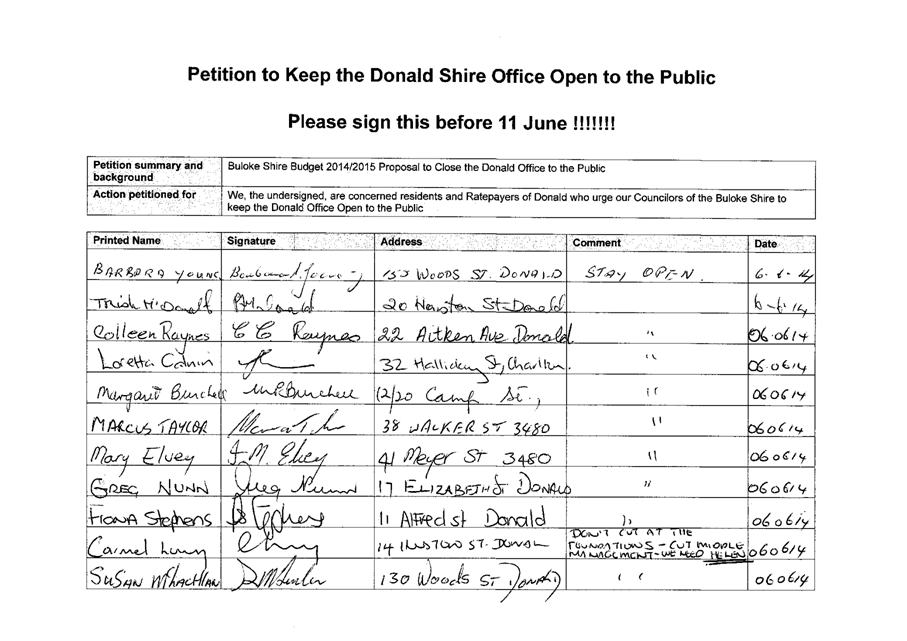 Petition to Keep the Donald Shire Office Open to the Public
Please sign this before 11 June !!!!!!!
Petition summary and background Buloke Shire Budget 2014/2015 Proposal to Close the Donald Office to the Public
Action petitioned for We, the undersigned, are concerned residents and Ratepayers of Donald who urge our Councilors of the Buloke Shire to
keep the Donald Office Open to the Public
Printed Name Signature Address Comment Date
BARBARA YOUNG WOODS ST. DONALD STAY OPEN. 6-6-14
20 St-Donald 6-6-14
Colleen Raynes C C Raynes 22 Aitken Ave Donald. " 06.0614
Loretta 32 Halliday St, Charlton. " 06.0614
Margaret Burchell M.P.Burchell 12/20 Camp St., " 060614
MARCUS TAYLOR 38 WALKER ST 3480 " 060614
Mary Elvey F.M. Elvey 41 Meyer St 3480 " 060614
GREG NUNN Greg Nunn 17 ELIZABETH St DONALD " 060614
FIONA Stephens 11 Alfred st Donald " 060614
Carmel 14 ST. DONALD DON'T CUT AT THE
FOUNDATIONS - CUT MIDDLE
MANAGEMENT - WE NEED HELEN 060614
SUSAN 130 Woods ST Donald " 060614